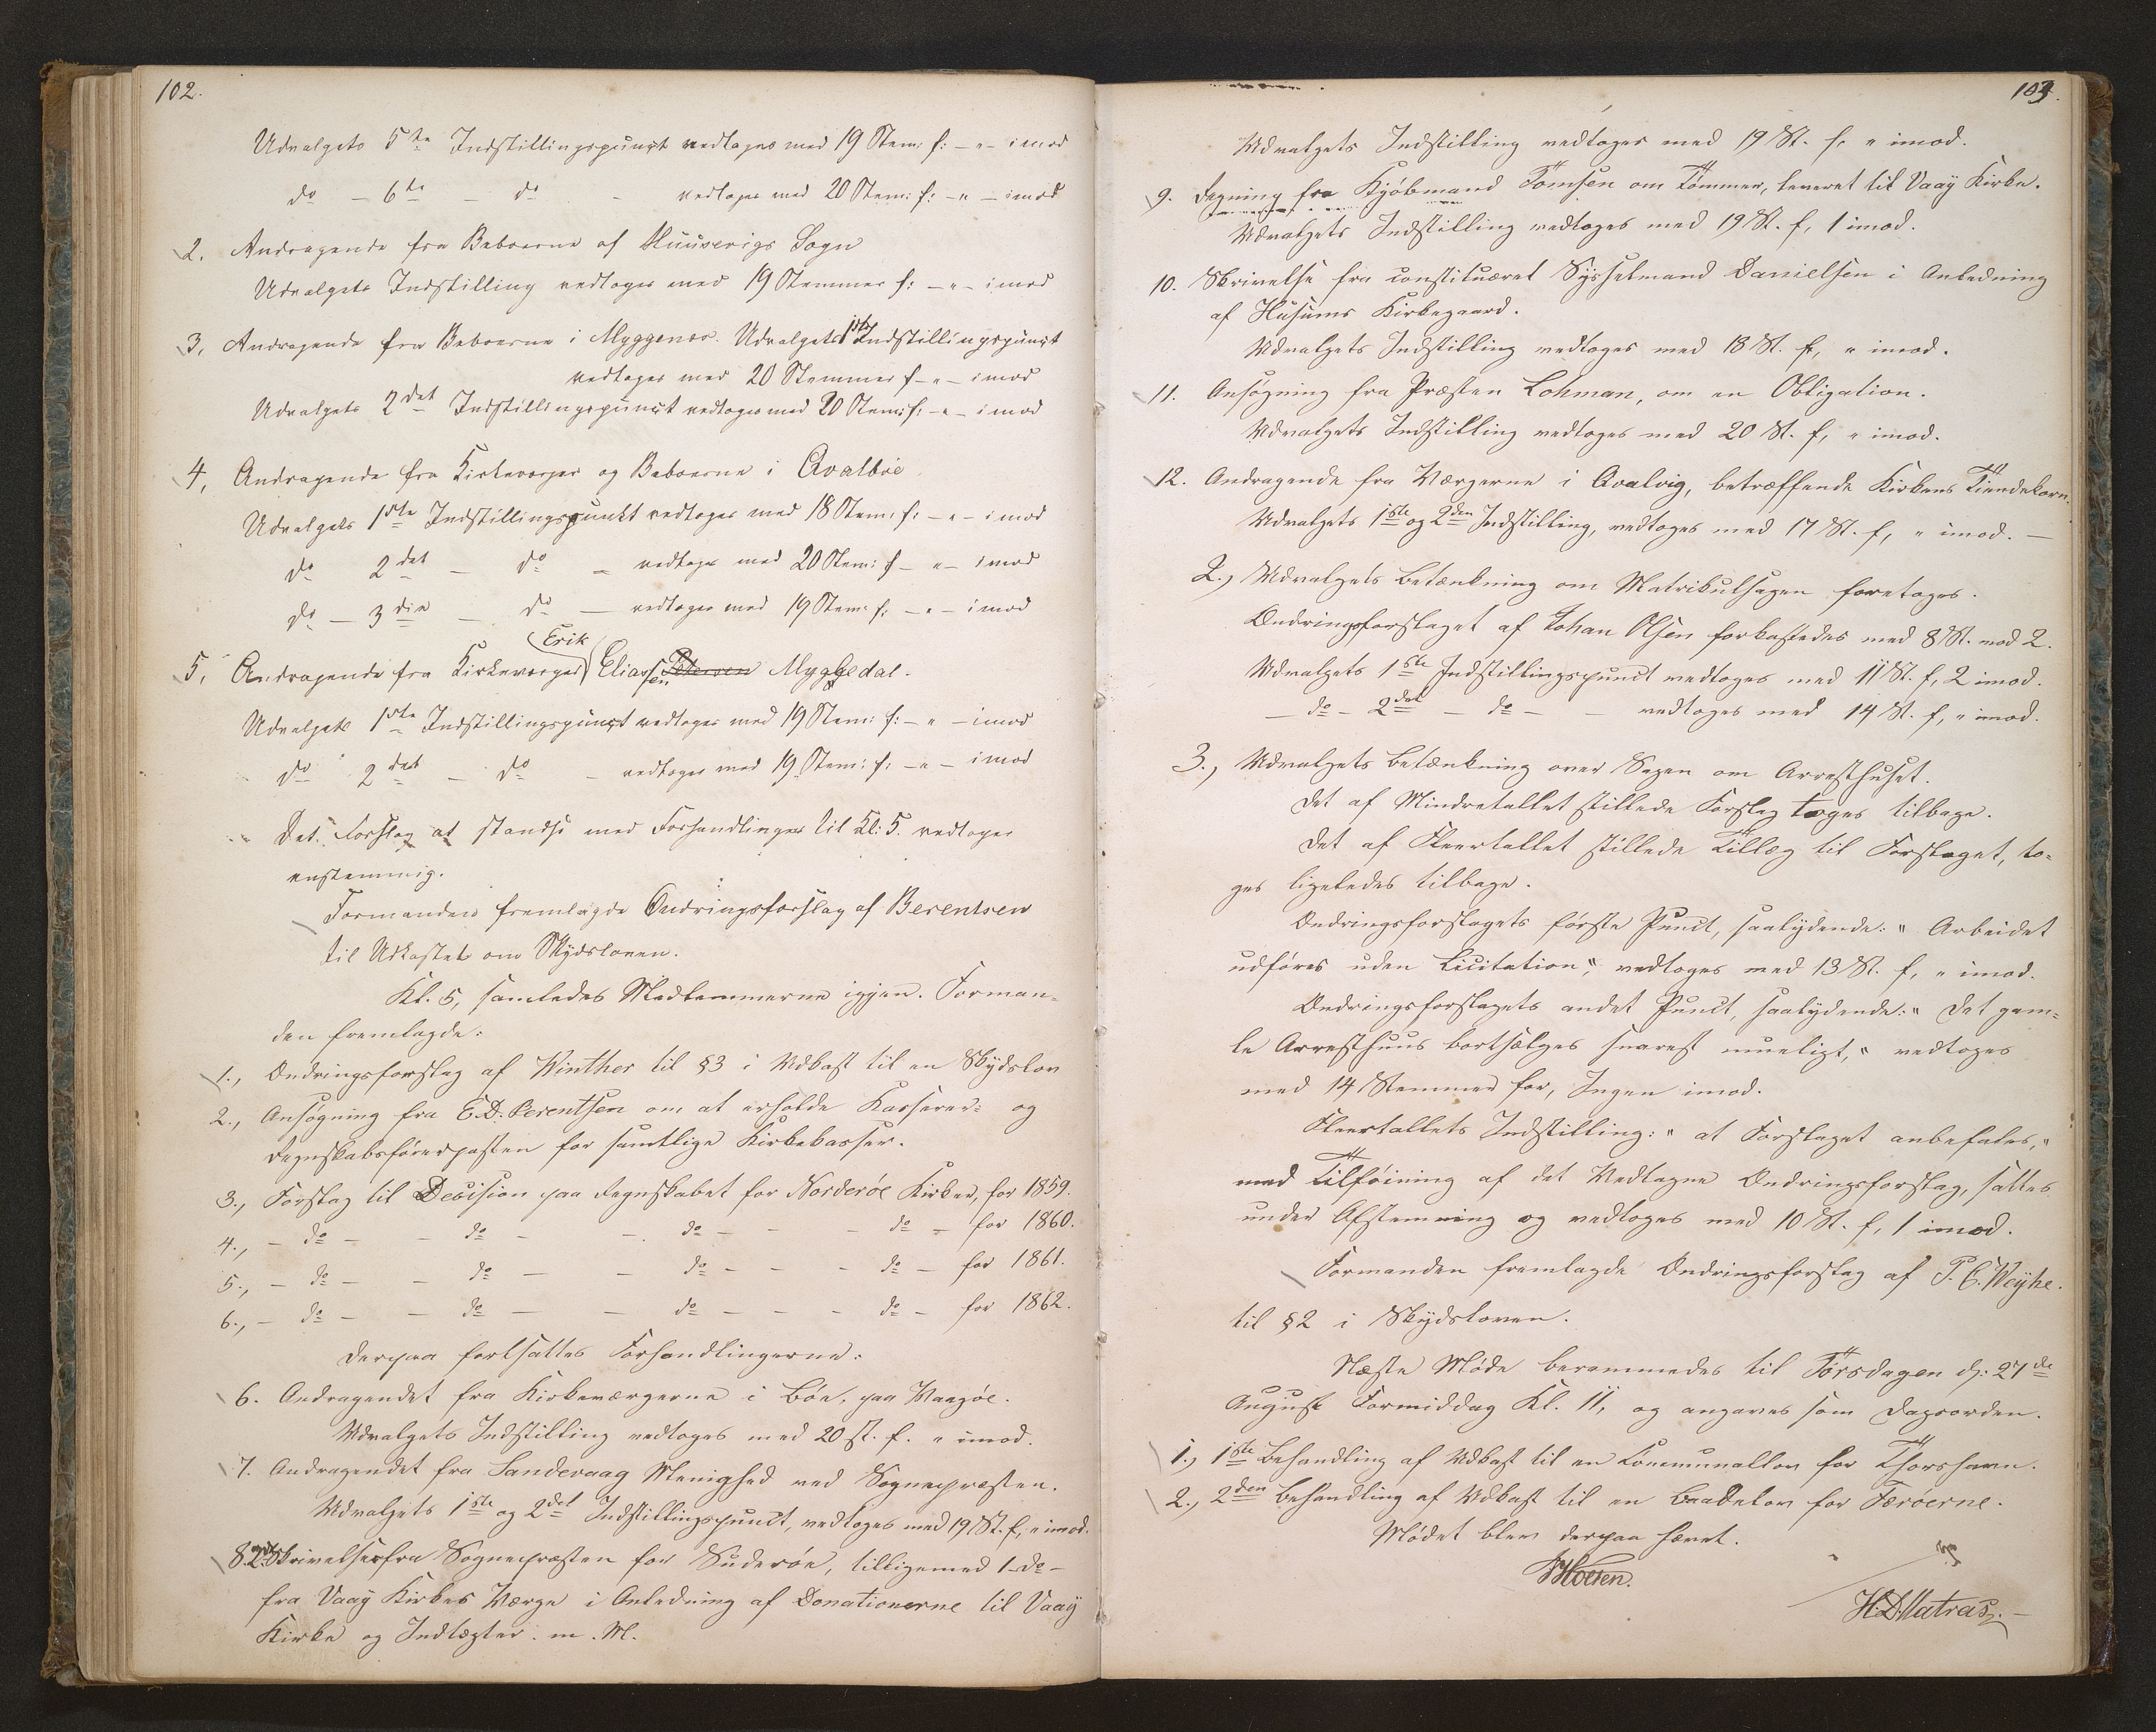 102.
Udvalgets 5te Indstillingspunct vedtoges med 19 Stem: f: – " – imod
do – 6te – do – vedtoges med 20 Stem: f: – " – imod
2. Andragende fra Beboerne af Huusevigs Sogn
Udvalgets Indstilling vedtoges med 19 Stemmer f: – " – imod
3, Andragende fra Beboerne i Myggenæs. Udvalgets 1ste Indstillingspunct
vedtoges med 20 Stemmer f – " – imod
Udvalgets 2det Indstillingspunct vedtoges med 20 Stem: f: – " – imod
4, Andragende fra Kirkeværger og Beboerne i Qvalbøe
Udvalgets 1ste Indstillingspunkt vedtoges med 18 Stem: f: – " – imod
do 2det – do – vedtoges med 20 Stem: f – " – imod
do – 3die – do – vedtoges med 19 Stem: f: – " – imod
5, Andragende fra Kirkeværger Erik Eliassen Petersen Myggedal.
Udvalgets 1ste Indstillingspunct vedtoges med 19 Stem: f: – " – imod
do 2det – do – vedtoges med 19 Stem: f: – " – imod
Det Forslag at standse med Forhandlinger til Kl: 5. vedtoges
enstemmig.
Formanden fremlagde Ændringsforslag af Berentsen
til Udkastet om Skydsloven.
Kl. 5, samledes Medlemmerne igjen. Forman-
den fremlagde:
1., Ændringsforslag af Winther til §3 i Udkast til en Skydslov
2., Ansøgning fra E.D. Berentsen om at erholde Kasserer- og
Regnskabsførerposten for samtlige Kirkekasser.
3., Forslag til Decision paa Regnskabet for Norderøe Kirker, for 1859.
4., – do – – do – – do – – – do – for 1860.
5., – do – – do – – do – – – do – for 1861.
6., – do – – do – – do – – – do – for 1862.
Derpaa fortsattes Forhandlingerne:
6. Andragendet fra Kirkeværgerne i Bøe, paa Waagøe.
Udvalgets Indstilling vedtoges med 20 st. f. " imod.
7. Andragendet fra Sandevaag Menighed ved Sognepræsten.
Udvalgets 1ste og 2det Indstillingspunct, vedtoges med 19 St. f, " imod.
8. 2de Skrivelser fra Sognepræsten for Suderøe, tilligemed 1 do –
fra Vaay Kirkes Værge i Anledning af Donationerne til Vaay
Kirke og Indtægter. m. M.
103.
Udvalgets Indstilling vedtoges med 19 St. f, " imod.
9. Regning fra Kjøbmand Tomsen om Tømmer, leveret til Vaay Kirke.
Udvalgets Indstilling vedtoges med 19 St. f, 1 imod.
10. Skrivelse fra constitueret Sysselmand Danielsen i Anledning
af Husums Kirkegaard.
Udvalgets Indstilling vedtoges med 18 St. f, " imod.
11. Ansøgning fra Præsten Lohman, om en Obligation.
Udvalgets Indstilling vedtoges med 20 St. f, " imod.
12. Andragende fra Værgerne i Qvalvig, betræffende Kirkens Tiendekorn.
Udvalgets 1ste og 2den Indstilling, vedtoges med 17 St. f, " imod. –
2., Udvalgets Betænkning om Matrikulsagen foretoges.
Ændringsforslaget af Johan Olsen forkastedes med 8 St. mod 2.
Udvalgets 1ste Indstillingspunct vedtoges med 11 St. f, 2 imod.
– do – 2det – do – – vedtoges med 14 St. f, " imod.
3., Udvalgets Betænkning over Sagen om Arresthuset.
Det af Mindretallet stillede Forslag toges tilbage.
Det af Fleertallet stillede Tillæg til Forslaget, to-
ges ligeledes tilbage.
Ændringsforslagets første Punct, saalydende: " Arbeidet
udføres uden Licitation", vedtoges med 13 St. f, " imod.
Ændringsforslagets andet Punct, saalydende: " Det gam-
le Arresthuus bortsælges snarest mueligt, " vedtoges
med 14 Stemmer for, Ingen imod.
Fleertallets Indstilling: " at Forslaget anbefales, "
med Tilføining af det Vedtagne Ændringsforslag, sattes
under Afstemning og vedtoges med 10 St. f, 1 imod.
Formanden fremlagde Ændringsforslag af P. C. Weyhe.
til §2 i Skydsloven.
Næste Møde berammedes til Torsdagen d: 27de
August Formiddag Kl. 11, og angaves som Dagsorden.
1., 1ste Behandling af Udkast til en Communallov for Thorshavn.
2., 2den Behandling af Udkast til en Baadelov for Færøerne.
Mødet blev derpaa hævet.
H. D. Matras.